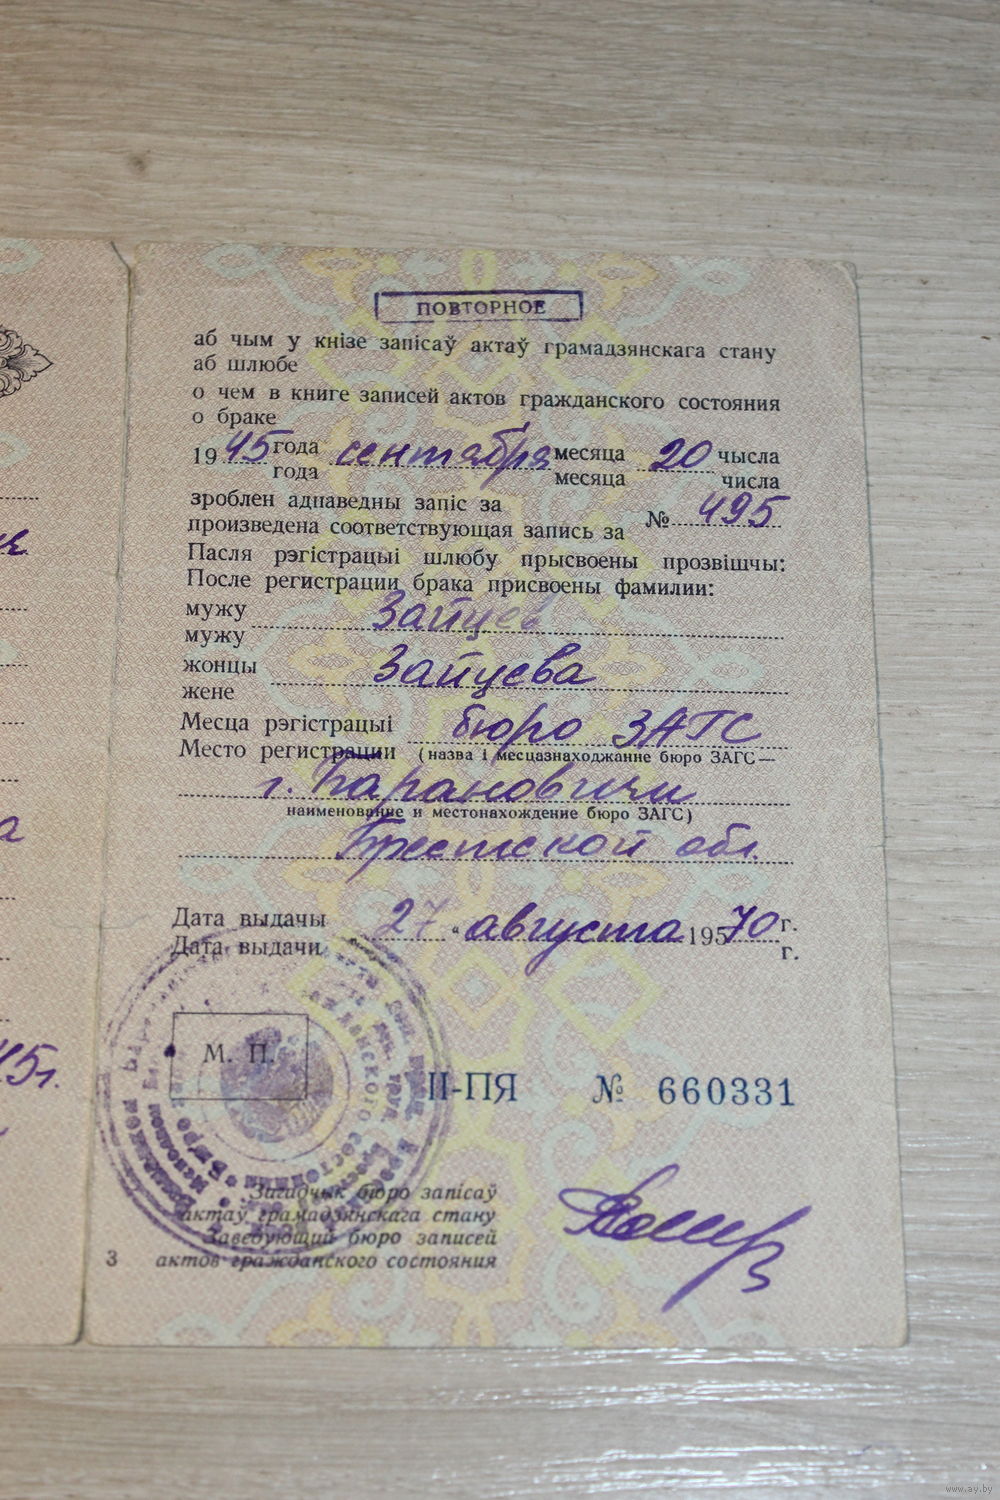 ПОВТОРНОЕ
аб чым у кнізе запісаў актаў грамадзянскага стану
аб шлюбе
о чем в книге записей актов гражданского состояния
о браке
1945 года сентября месяца 20 чысла
года месяца числа
зроблен адпаведны запіс за
произведена соответствующая запись за № 495
Пасля рэгістрацыі шлюбу прысвоены прозвішчы:
После регистрации брака присвоены фамилии:
мужу Зайцев
мужу
жонцы Зайцева
жене
Месца рэгістрацыі бюро ЗАГС
Место регистрации (назва і месцазнаходжанне бюро ЗАГС—
г. Барановичи
наименование и местонахождение бюро ЗАГС)
Брестской обл.
Дата выдачы 27 „ августа 19570 г.
Дата выдачи г.
М. П.
II-ПЯ № 660331
Загадчык бюро запісаў
актаў грамадзянскага стану
Заведующий бюро записей
3 актов гражданского состояния
45г.
www.ay.by